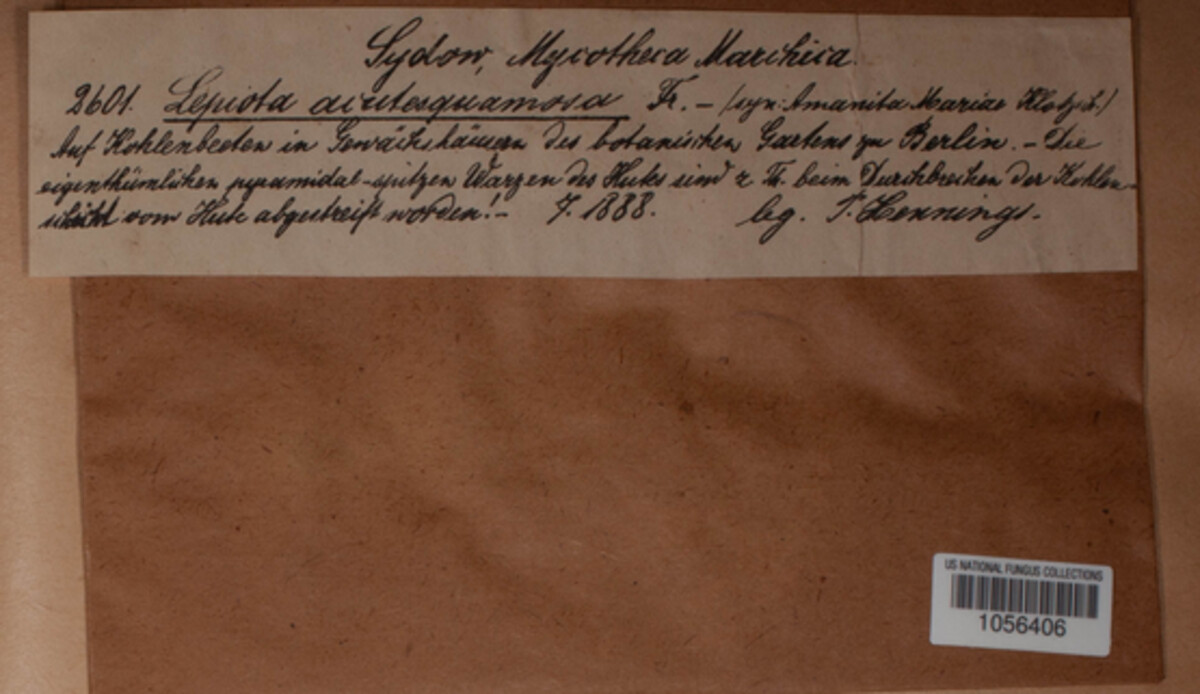 Sydow, Mycotheca Marchica.
2601. Lepiota acutesquamosa Fr. – (syn: Amanita Mariae Klotzsch.)
Auf Kohlenbeeten in Gewächshäusern des botanischen Gartens zu Berlin. – Die
eigenthümlichen pyramidal-spitzen Warzen des Hutes sind z. Th. beim Durchbrechen der Kohlen-
schicht vom Hute abgestreift worden! – 7. 1888. leg. P. Hennings.
US NATIONAL FUNGUS COLLECTIONS
1056406